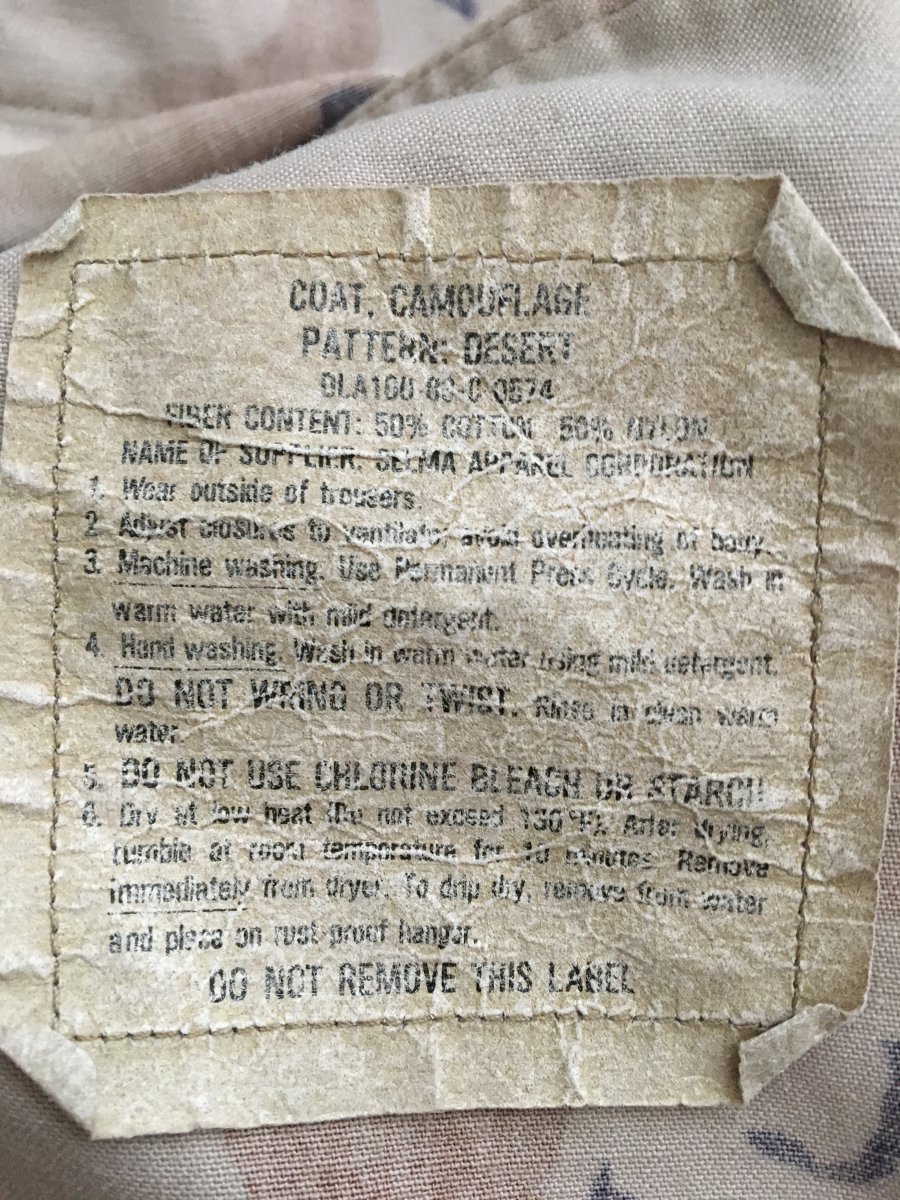 COAT, CAMOUFLAGE
PATTERN: DESERT
FIBER CONTENT: 50% COTTON 50% NYLON
NAME OF SUPPLIER: SELMA APPAREL CORPORATION
1. Wear outside of trousers.
2. Adjust closures to ventilate, avoid overheating of body.
3. Machine washing. Use Permanent Press Cycle. Wash in
warm water with mild detergent.
4. Hand washing. Wash in warm water using mild detergent.
DO NOT WRING OR TWIST. Rinse in clean warm
water.
5. DO NOT USE CHLORINE BLEACH OR STARCH
6. Dry at low heat (Do not exceed 130°F). After drying,
tumble at room temperature for 10 minutes. Remove
immediately from dryer. To drip dry, remove from water
and place on rust-proof hanger.
DO NOT REMOVE THIS LABEL